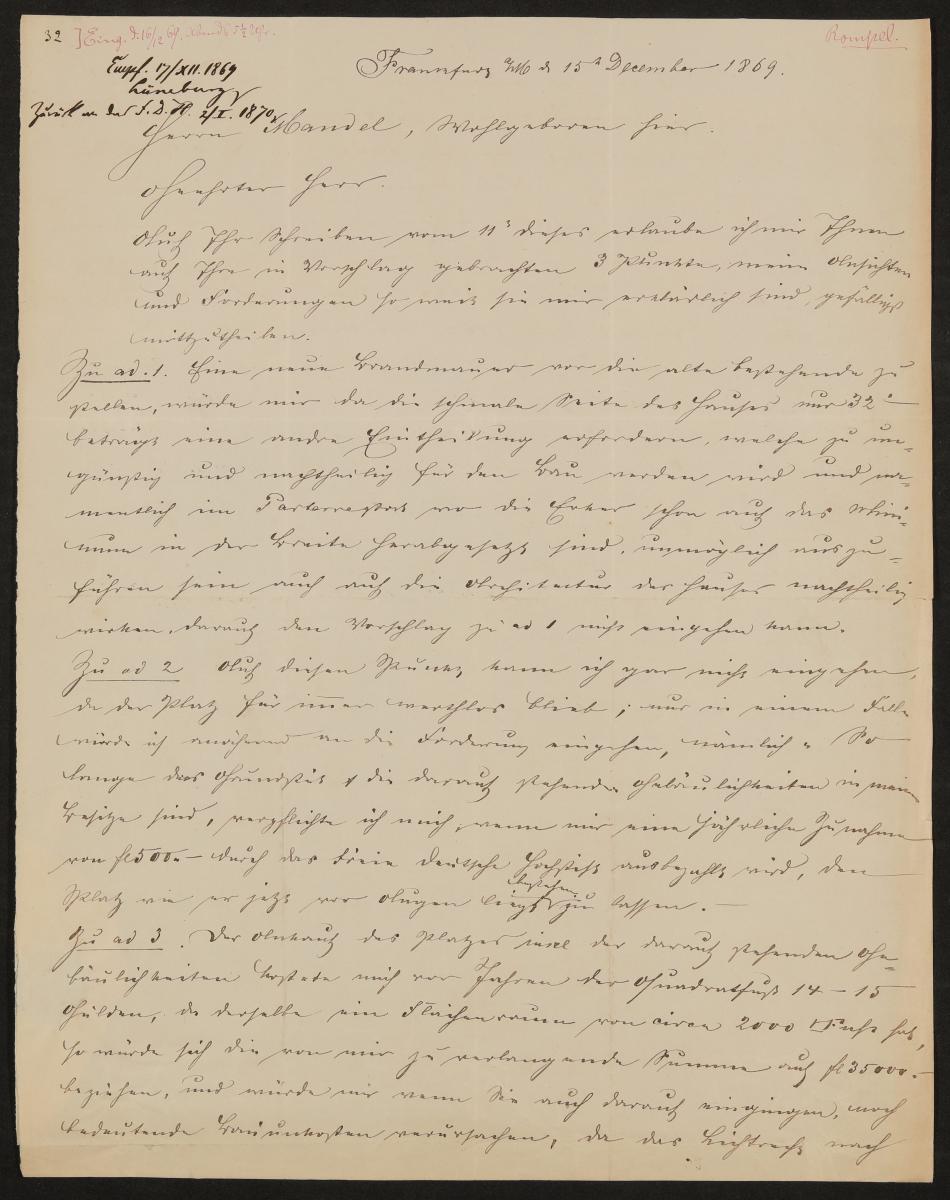 32 Eing. d. 16/12 69, Abends 5½ Uhr.
Rompel.
Empf. 17/XII. 1869
Lüneburg
Zurück an das F. D. H. 2/I. 1870.
Frankfurt a/M d 15n December 1869.
Herrn Mandel, Wohlgeboren hier.
Geehrter Herr.
Auf Ihr Schreiben vom 11n dieses erlaube ich mir Ihnen
auf Ihre in Vorschlag gebrachten 3 Punkte, meine Ansichten
und Forderungen so weit sie mir erklärlich sind, gefälligst
mittzutheilen.
Zu ad. 1. Eine neue Brandmauer vor die alte bestehende zu
stellen, würde mir da die schmale Seite des Hauses nur 32'
beträgt eine andre Eintheilung erfordern, welche zu un-
günstig und nachtheilig für den Bau werden wird und na-
mentlich im Parterrestock wo die Erker schon auf das Mini-
mum in der Breite herabgesetzt sind, unmöglich auszu-
führen sein auch auf die Architectur des Hauses nachtheilig
wirken, darauf den Vorschlag zu ad 1 nicht eingehen kann.
Zu ad 2 Auf diesen Punkt kann ich gar nicht eingehen,
da der Platz für immer werthlos bliebe; nur in einem Falle
würde ich annähernd an die Forderung eingehen, nämlich "So
lange das Grundstük & die darauf stehenden Gebäulichkeiten in meinem
Besitze sind, verpflichte ich mich, wenn mir eine jährliche Zunahme
von fl 500.- durch das Freie Deutsche Hochstift ausbezahlt wird, den
Platz wie er jetzt vor Augen liegt bestehen zu lassen. —
Zu ad 3. Der Ankauf des Platzes incl der darauf stehenden Ge-
bäulichkeiten kostete mich vor Jahren der Quadratfuß 14 - 15
Gulden, da derselbe ein Flächenraum von circa 2000 □Fuß hat,
so würde sich die von mir zu verlangende Summe auf fl 35000.-
beziehen, und würde mir wenn Sie auch darauf eingingen, noch
bedeutende Bauunkosten verursachen, da das Lichtrecht nach